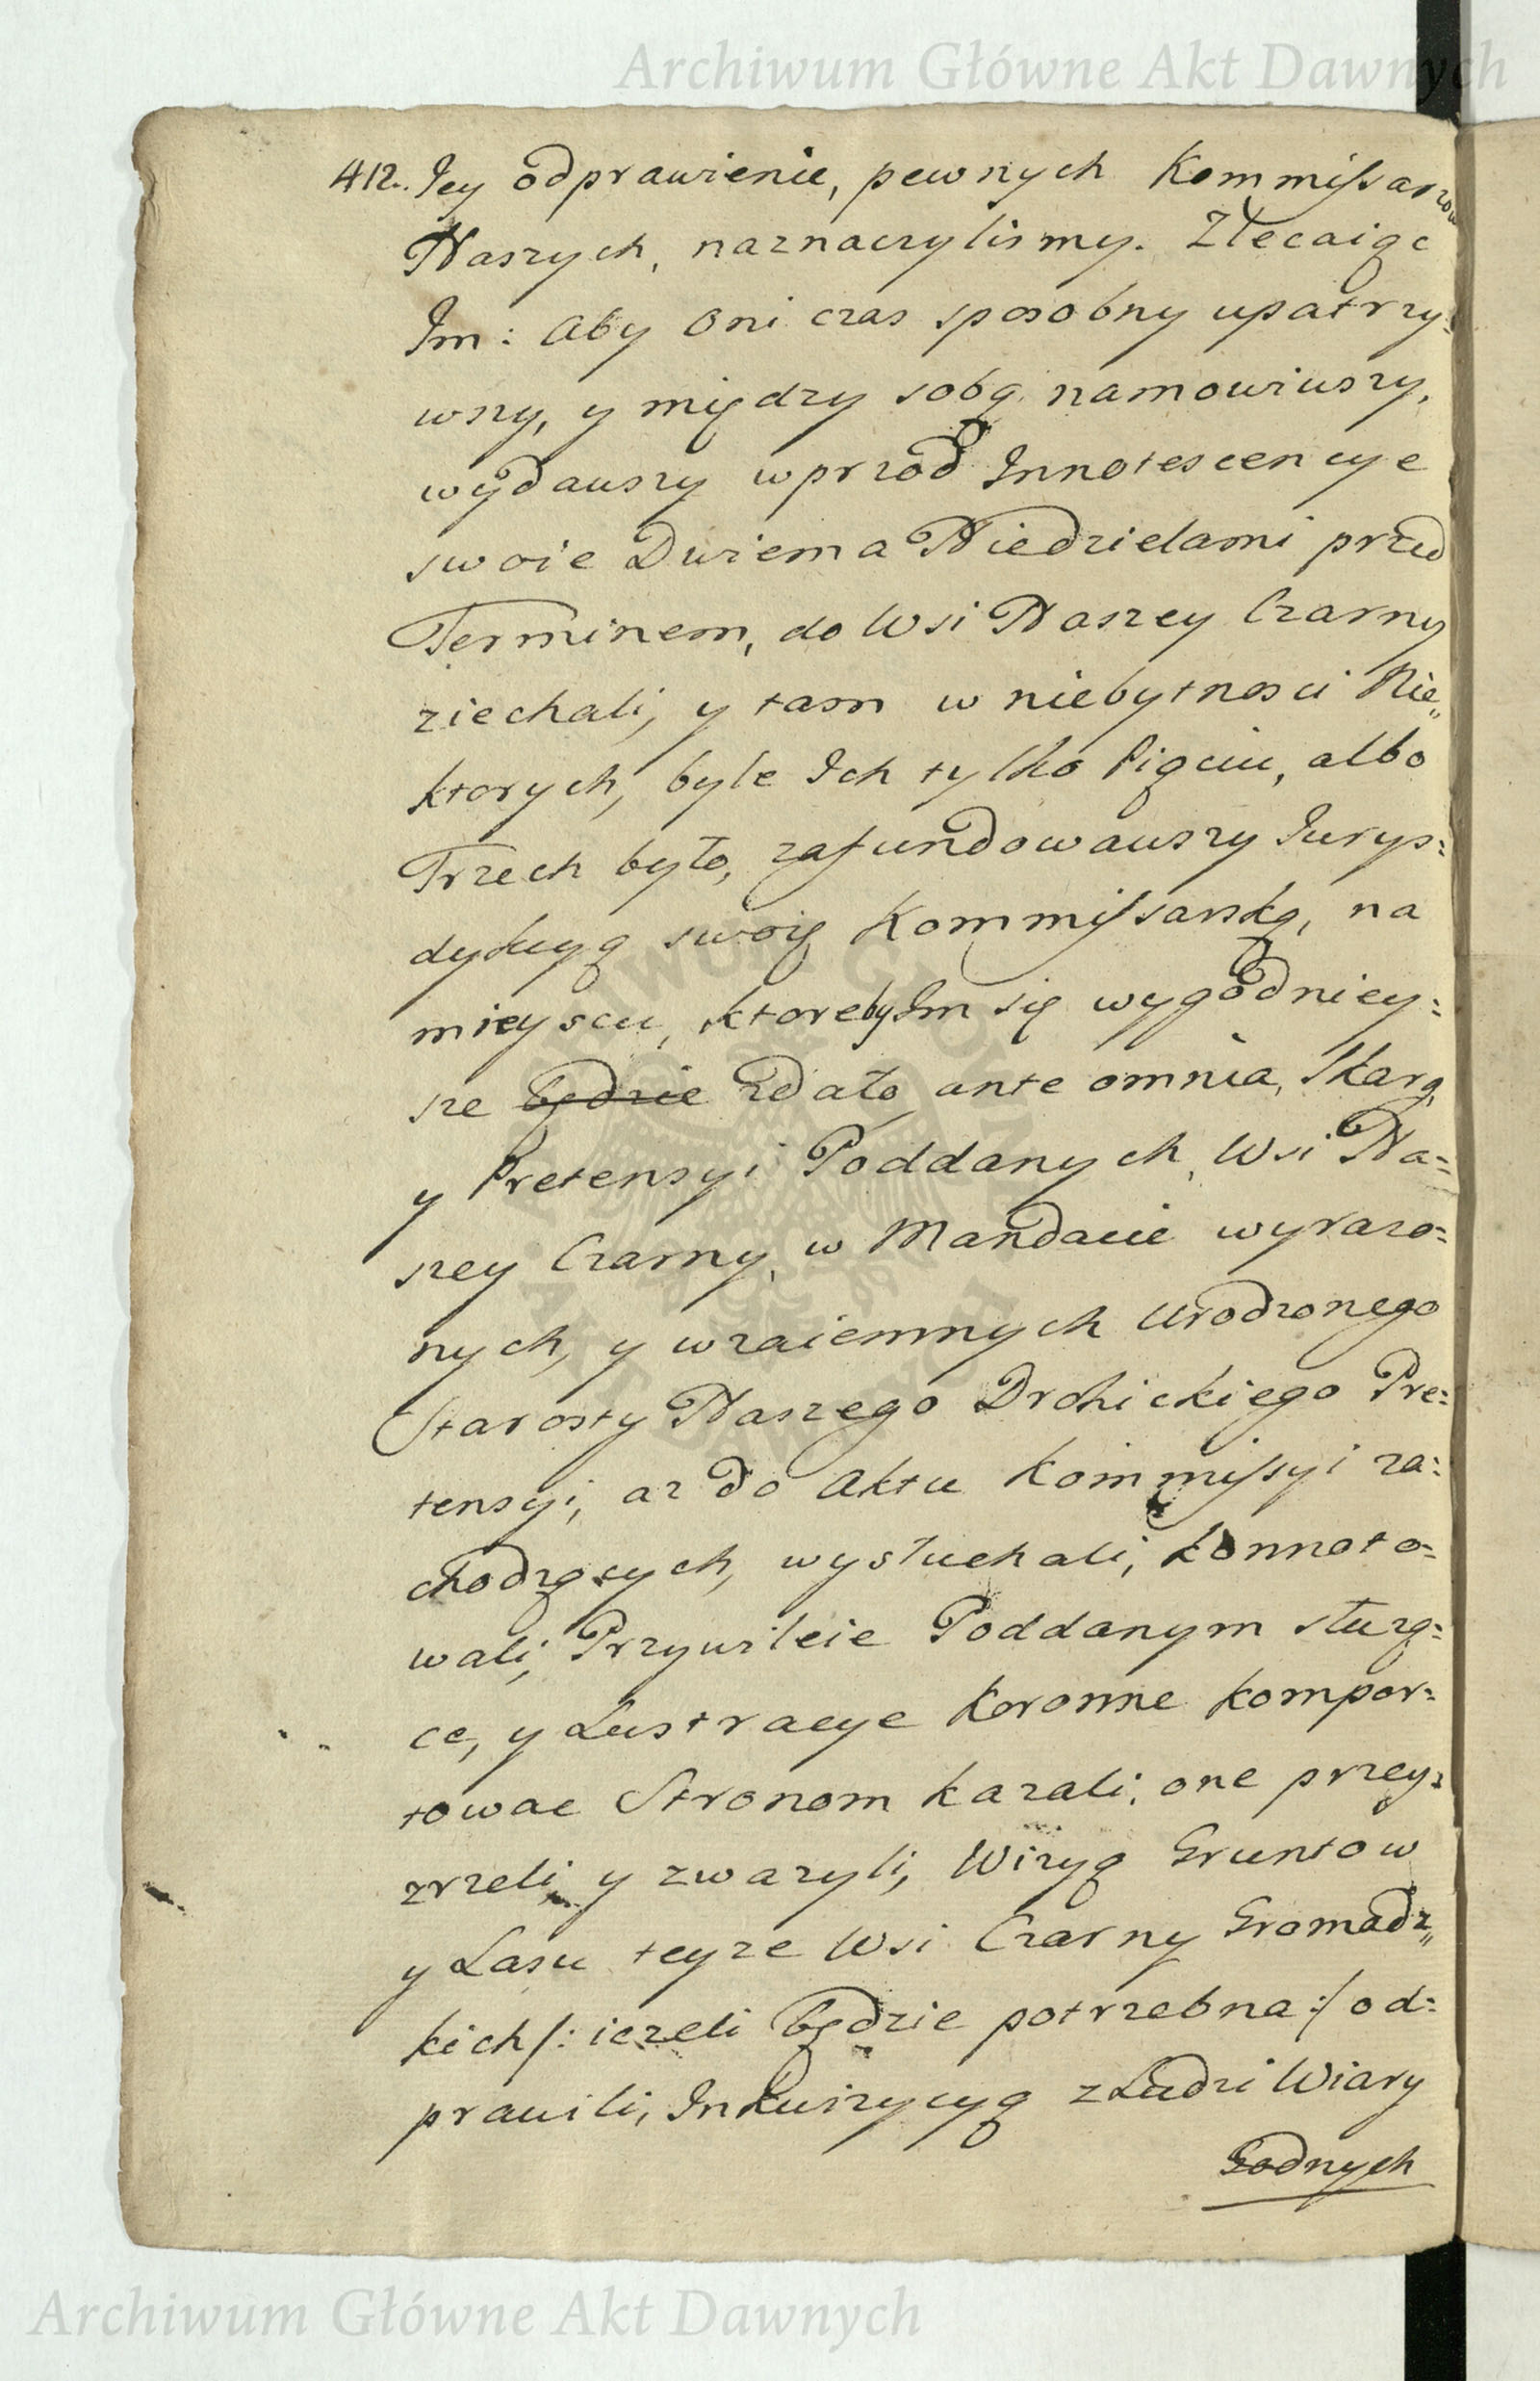 Archiwum Główne Akt Dawnych
412. Jey odprawienie, pewnych Kommissarzow
Naszych, naznaczylismy. Zlecaiąc
Im: Aby Oni czas sposobny upatrzy=
wszy, y między sobą namowiwszy,
wydawszy wprzod Innotescencye
swoie Dwiema Niedzielami przed
Terminem, do Wsi Naszey Czarny
ziechali, y tam w niebytnosci Nie„
ktorych, byle Ich tylko Pięciu, albo
Trzech było, zafundowawszy Jurys=
dykcyą swoię Kommissarską, na
mieyscu, ktoreby Im się wygodniey=
sze będzie zdało, ante omnia, Skarg,
y Pretensyi Poddanych, Wsi Na=
szey Czarny, w Mandacie wyrazo=
nych, y wzaiemnych Urodzonego
Starosty Naszego Drohickiego Pre=
tensyi, az do Aktu Kommissyi za=
chodzących, wysłuchali, konnoto=
wali, Przywileie Poddanym służą=
ce, y Lustracye Koronne kompor=
towac Stronom kazali, one przey=
zrzeli, y zwazyli, Wizyą Gruntow
y Lasu teyze Wsi Czarny Gromadz„
kich /: iezeli będzie potrzebna :/ od=
prawili, Inkwizycyą z Ludzi Wiary
Godnych
Archiwum Główne Akt Dawnych